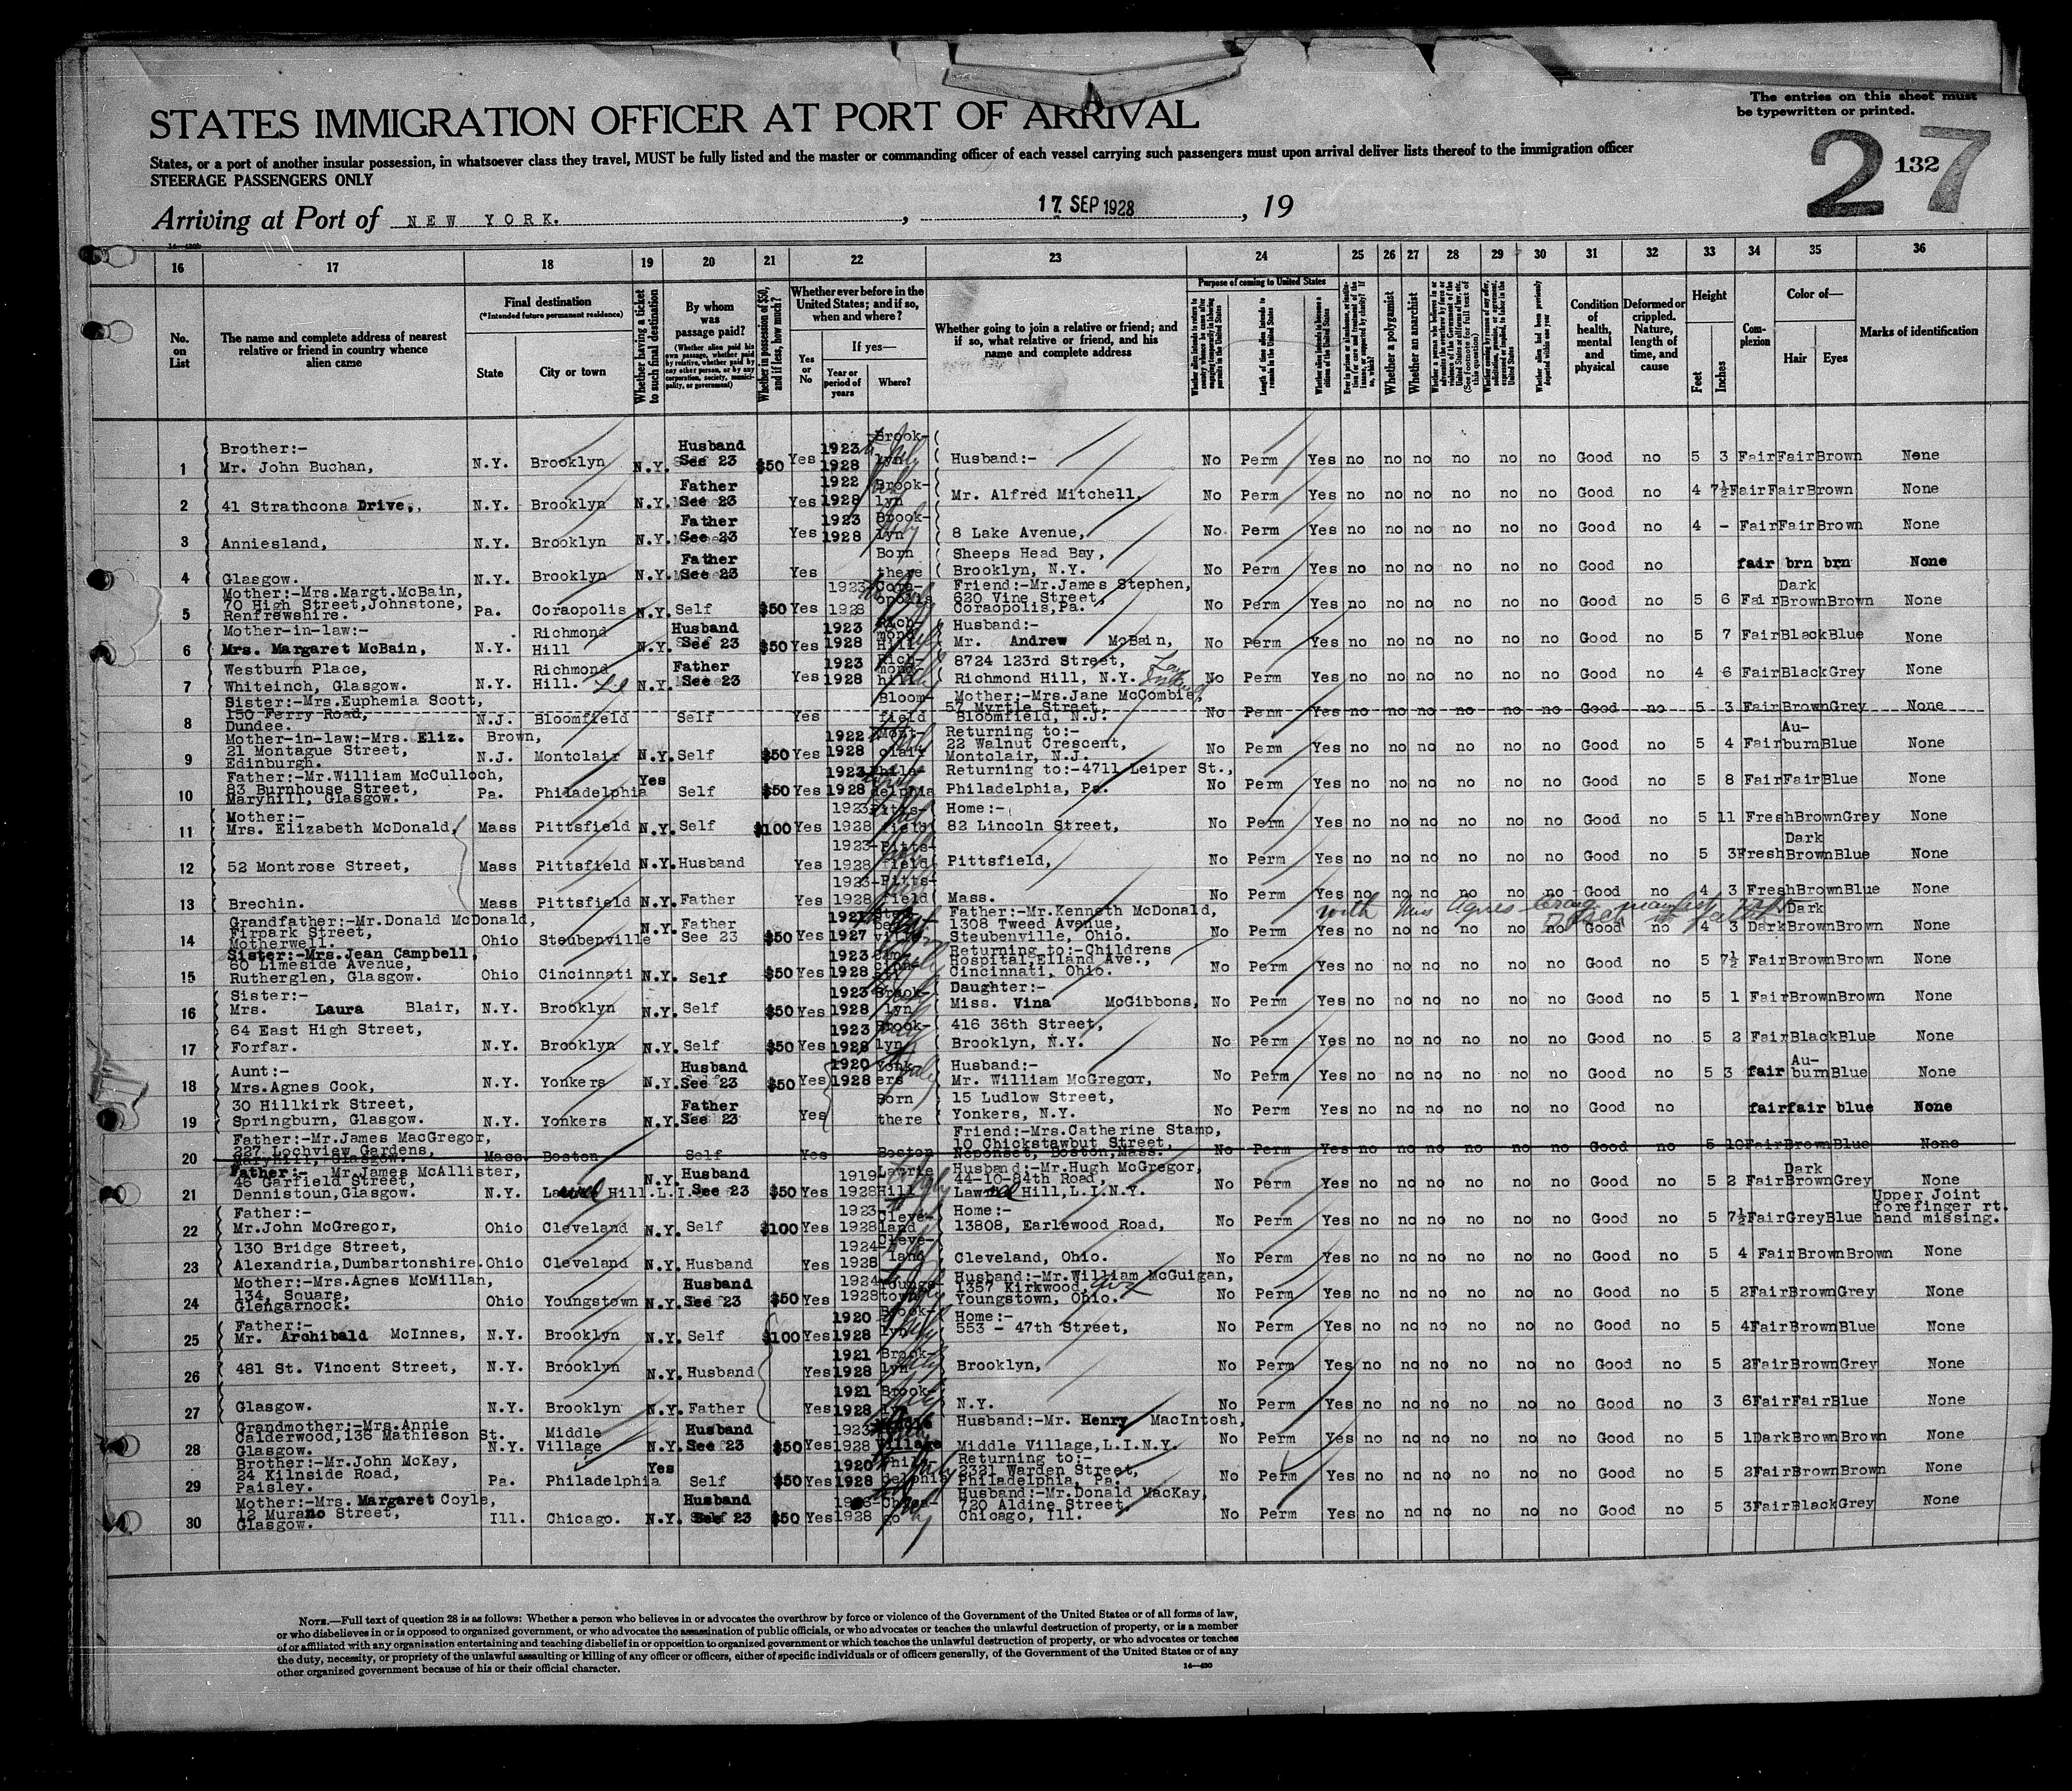 The entries on this sheet must
be typewritten or printed.
STATES IMMIGRATION OFFICER AT PORT OF ARRIVAL
27
132
States, or a port of another insular possession, in whatsoever class they travel, MUST be fully listed and the master or commanding officer of each vessel carrying such passengers must upon arrival deliver lists thereof to the immigration officer
STEERAGE PASSENGERS ONLY
Arriving at Port of NEW YORK. , 17 SEP 1928 , 19
16 17 18 19 20 21 22 23 24 25 26 27 28 29 30 31 32 33 34 35 36
No. on List
The name and complete address of nearest relative or friend in country whence alien came
Final destination
(*Intended future permanent residence)
State
City or town
Whether having a ticket to such final destination
By whom was passage paid?
(Whether alien paid his own passage, whether paid by relative, whether paid by any other person, or by any corporation, society, municipality, or government)
Whether in possession of $50, and if less, how much?
Whether ever before in the United States; and if so, when and where?
Yes or No
If yes—
Year or period of years
Where?
Whether going to join a relative or friend; and if so, what relative or friend, and his name and complete address
Purpose of coming to United States
Length of time alien intends to remain in the United States
Whether alien intends to become a citizen of the United States
Whether a polygamist
Whether an anarchist
Whether alien had been previously deported within one year
Condition of health, mental and physical
Deformed or crippled. Nature, length of time, and cause
Height
Feet
Inches
Complexion
Color of—
Hair
Eyes
Marks of identification
1 Brother:- Mr. John Buchan, N.Y. Brooklyn N.Y. Husband See 23 $50 Yes 1923 1928 Brooklyn Husband:- No Perm Yes no no no no no no Good no 5 3 Fair Fair Brown None
2 41 Strathcona Drive, N.Y. Brooklyn N.Y. Father See 23 Yes 1922 1928 Brooklyn Mr. Alfred Mitchell, No Perm Yes no no no no no no Good no 4 7½ Fair Fair Brown None
3 Anniesland, N.Y. Brooklyn N.Y. Father See 23 Yes 1923 1928 Brooklyn 8 Lake Avenue, No Perm Yes no no no no no no Good no 4 - Fair Fair Brown None
4 Glasgow. N.Y. Brooklyn N.Y. Father See 23 Yes Born there Sheeps Head Bay, Brooklyn, N.Y. No Perm Yes no no no no no no Good no fair brn brn None
5 Mother:-Mrs.Margt.McBain, 70 High Street,Johnstone, Renfrewshire. Pa. Coraopolis N.Y. Self $50 Yes 1923 1928 Coraopolis Friend:-Mr.James Stephen, 620 Vine Street, Coraopolis,Pa. No Perm Yes no no no no no no Good no 5 6 Fair Dark Brown Brown None
6 Mother-in-law:- Mrs. Margaret McBain, N.Y. Richmond Hill N.Y. Husband See 23 $50 Yes 1923 1928 Richmond Hill Husband:- Mr. Andrew McBain, No Perm Yes no no no no no no Good no 5 7 Fair Black Blue None
7 Westburn Place, Whiteinch, Glasgow. N.Y. Richmond Hill. N.Y. Father See 23 Yes 1923 1928 Richmond hill 8724 123rd Street, Richmond Hill, N.Y. No Perm Yes no no no no no no Good no 4 6 Fair Black Grey None
8 Sister:-Mrs.Euphemia Scott, 150 Ferry Road, Dundee. N.J. Bloomfield Self Yes Bloomfield Mother:-Mrs.Jane McCombie, 57 Myrtle Street, Bloomfield, N.J. No Perm Yes no no no no no no Good no 5 3 Fair Brown Grey None
9 Mother-in-law:-Mrs. Eliz. Brown, 21 Montague Street, Edinburgh. N.J. Montclair N.Y. Self $50 Yes 1922 1928 Montclair Returning to:- 22 Walnut Crescent, Montclair, N.J. No Perm Yes no no no no no no Good no 5 4 Fair Auburn Blue None
10 Father:-Mr.William McCulloch, 83 Burnhouse Street, Maryhill, Glasgow. Pa. Philadelphia Yes Self $50 Yes 1923 1928 Philadelphia Returning to:-4711 Leiper St., Philadelphia, Pa. No Perm Yes no no no no no no Good no 5 8 Fair Fair Blue None
11 Mother:- Mrs. Elizabeth McDonald, Mass Pittsfield N.Y. Self $100 Yes 1923 1928 Pittsfield Home:- 82 Lincoln Street, No Perm Yes no no no no no no Good no 5 11 Fresh Brown Grey None
12 52 Montrose Street, Mass Pittsfield N.Y. Husband Yes 1923 1928 Pittsfield Pittsfield, No Perm Yes no no no no no no Good no 5 3 Fresh Dark Brown Blue None
13 Brechin. Mass Pittsfield N.Y. Father Yes 1923 1928 Pittsfield Mass. No Perm Yes no no no no no no Good no 4 3 Fresh Brown Blue None
with Miss Agnes Craig manifest
14 Grandfather:-Mr.Donald McDonald, Firpark Street, Motherwell. Ohio Steubenville N.Y. Father See 23 $50 Yes 1921 1927 Steubenville Father:-Mr.Kenneth McDonald, 1308 Tweed Avenue, Steubenville, Ohio. No Perm Yes no no no no no no Good no 4 3 Dark Dark Brown Brown None
15 Sister:-Mrs.Jean Campbell, 60 Limeside Avenue, Rutherglen, Glasgow. Ohio Cincinnati N.Y. Self $50 Yes 1923 1928 Returning to:-Childrens Hospital,Elland Ave., Cincinnati, Ohio. No Perm Yes no no no no no no Good no 5 7½ Fair Brown Brown None
16 Sister:- Mrs. Laura Blair, N.Y. Brooklyn N.Y. Self $50 Yes 1923 1928 Brooklyn Daughter:- Miss. Vina McGibbons, No Perm Yes no no no no no no Good no 5 1 Fair Brown Brown None
17 64 East High Street, Forfar. N.Y. Brooklyn N.Y. Self $50 Yes 1923 1928 Brooklyn 416 36th Street, Brooklyn, N.Y. No Perm Yes no no no no no no Good no 5 2 Fair Black Blue None
18 Aunt:- Mrs.Agnes Cook, N.Y. Yonkers N.Y. Husband See 23 $50 Yes 1920 1928 Yonkers Husband:- Mr. William McGregor, No Perm Yes no no no no no no Good no 5 3 fair Auburn Blue None
19 30 Hillkirk Street, Springburn, Glasgow. N.Y. Yonkers N.Y. Father See 23 Yes Born there 15 Ludlow Street, Yonkers, N.Y. No Perm Yes no no no no no no Good no fair fair blue None
20 Father:-Mr.James MacGregor, 227 Lochview Gardens, Maryhill, Glasgow. Mass Boston Self Yes Boston Friend:-Mrs.Catherine Stamp, 10 Chickstawbut Street, Neponset, Boston,Mass. No Perm Yes no no no no no no Good no 5 10 Fair Brown Blue None
21 Father:- Mr.James McAllister, 46 Garfield Street, Dennistoun,Glasgow. N.Y. Laurel Hill.L.I. N.Y. Husband See 23 $50 Yes 1919 1928 Husband:-Mr.Hugh McGregor, 44-10-84th Road, Lawrel Hill,L.I.N.Y. No Perm Yes no no no no no no Good no 5 2 Fair Dark Brown Grey None
22 Father:- Mr.John McGregor, Ohio Cleveland N.Y. Self $100 Yes 1923 1928 Cleveland Home:- 13808, Earlewood Road, No Perm Yes no no no no no no Good no 5 7½ Fair Grey Blue Upper Joint forefinger rt. hand missing.
23 130 Bridge Street, Alexandria,Dumbartonshire. Ohio Cleveland N.Y. Husband Yes 1924 1928 Cleveland Cleveland, Ohio. No Perm Yes no no no no no no Good no 5 4 Fair Brown Brown None
24 Mother:-Mrs.Agnes McMillan, 134, Square, Glengarnock. Ohio Youngstown N.Y. Husband See 23 $50 Yes 1924 1928 Youngstown Husband:-Mr.William McGuigan, 1357 Kirkwood, Ave Youngstown, Ohio. No Perm Yes no no no no no no Good no 5 2 Fair Brown Grey None
25 Father:- Mr. Archibald McInnes, N.Y. Brooklyn N.Y. Self $100 Yes 1920 1928 Brooklyn Home:- 553 - 47th Street, No Perm Yes no no no no no no Good no 5 4 Fair Brown Blue None
26 481 St. Vincent Street, N.Y. Brooklyn N.Y. Husband Yes 1921 1928 Brooklyn Brooklyn, No Perm Yes no no no no no no Good no 5 2 Fair Brown Grey None
27 Glasgow. N.Y. Brooklyn N.Y. Father Yes 1921 1928 Brooklyn N.Y. No Perm Yes no no no no no no Good no 3 6 Fair Fair Blue None
28 Grandmother:-Mrs.Annie Calderwood,136 Mathieson St. Glasgow. N.Y. Middle Village N.Y. Husband See 23 $50 Yes 1923 1928 Middle Village Husband:-Mr. Henry MacIntosh, Middle Village,L.I.N.Y. No Perm Yes no no no no no no Good no 5 1 Dark Brown Brown None
29 Brother:-Mr.John McKay, 24 Kilnside Road, Paisley. Pa. Philadelphia Yes Self $50 Yes 1920 1928 Philadelphia Returning to:- 2321 Warden Street, Philadelphia, Pa. No Perm Yes no no no no no no Good no 5 2 Fair Brown Brown None
30 Mother:-Mrs. Margaret Coyle, 12 Murano Street, Glasgow. Ill. Chicago. N.Y. Husband See 23 $50 Yes 1928 Chicago Husband:-Mr.Donald MacKay, 720 Aldine Street, Chicago, Ill. No Perm Yes no no no no no no Good no 5 3 Fair Black Grey None
NOTE.—Full text of question 28 is as follows: Whether a person who believes in or advocates the overthrow by force or violence of the Government of the United States or of all forms of law,
or who disbelieves in or is opposed to organized government, or who advocates the assassination of public officials, or who advocates or teaches the unlawful destruction of property, or is a member
of or affiliated with any organization entertaining and teaching disbelief in or opposition to organized government or which teaches the unlawful destruction of property, or who advocates or teaches
the duty, necessity, or propriety of the unlawful assaulting or killing of any officer or officers, either of specific individuals or of officers generally, of the Government of the United States or of any
other organized government because of his or their official character.
14—430